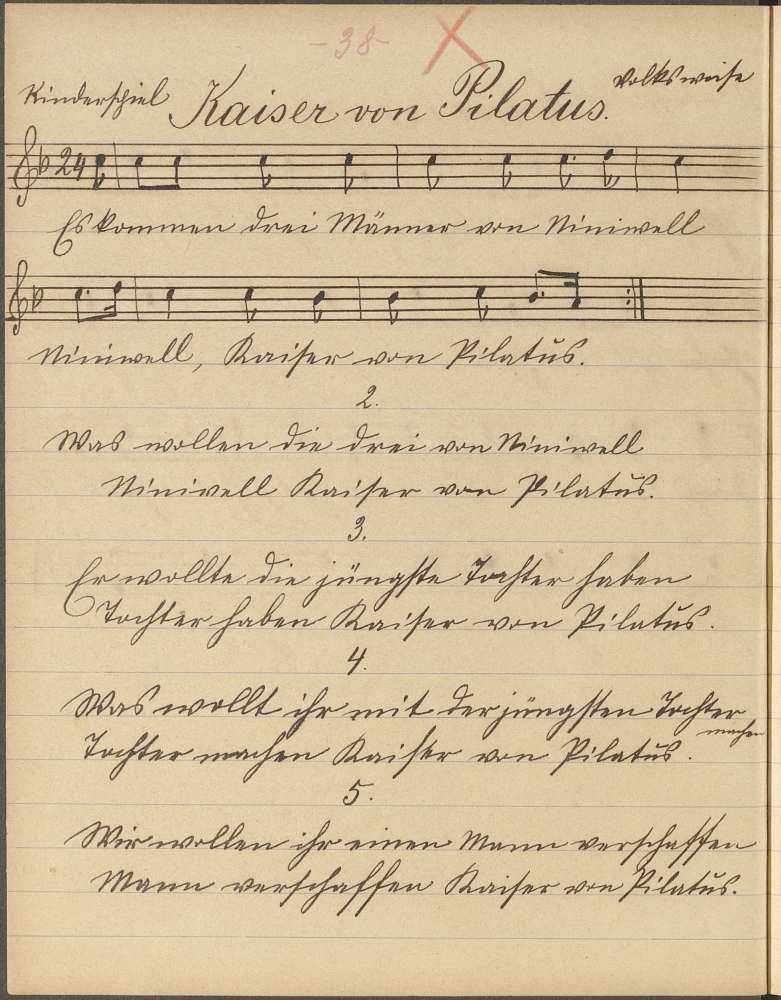 -38-
Kinderspiel Kaiser von Pilatus. Volksweise
24
Es kommen drei Männer von Niniwell
Niniwell, Kaiser von Pilatus.
2.
Was wollen die drei von Niniwell
Niniwell Kaiser von Pilatus.
3.
Er wollte die jüngste Tochter haben
Tochter haben Kaiser von Pilatus.
4.
Was wollt ihr mit der jüngsten Tochter
machen
Tochter machen Kaiser von Pilatus.
5.
Wir wollen ihr einen Mann verschaffen
Mann verschaffen Kaiser von Pilatus.